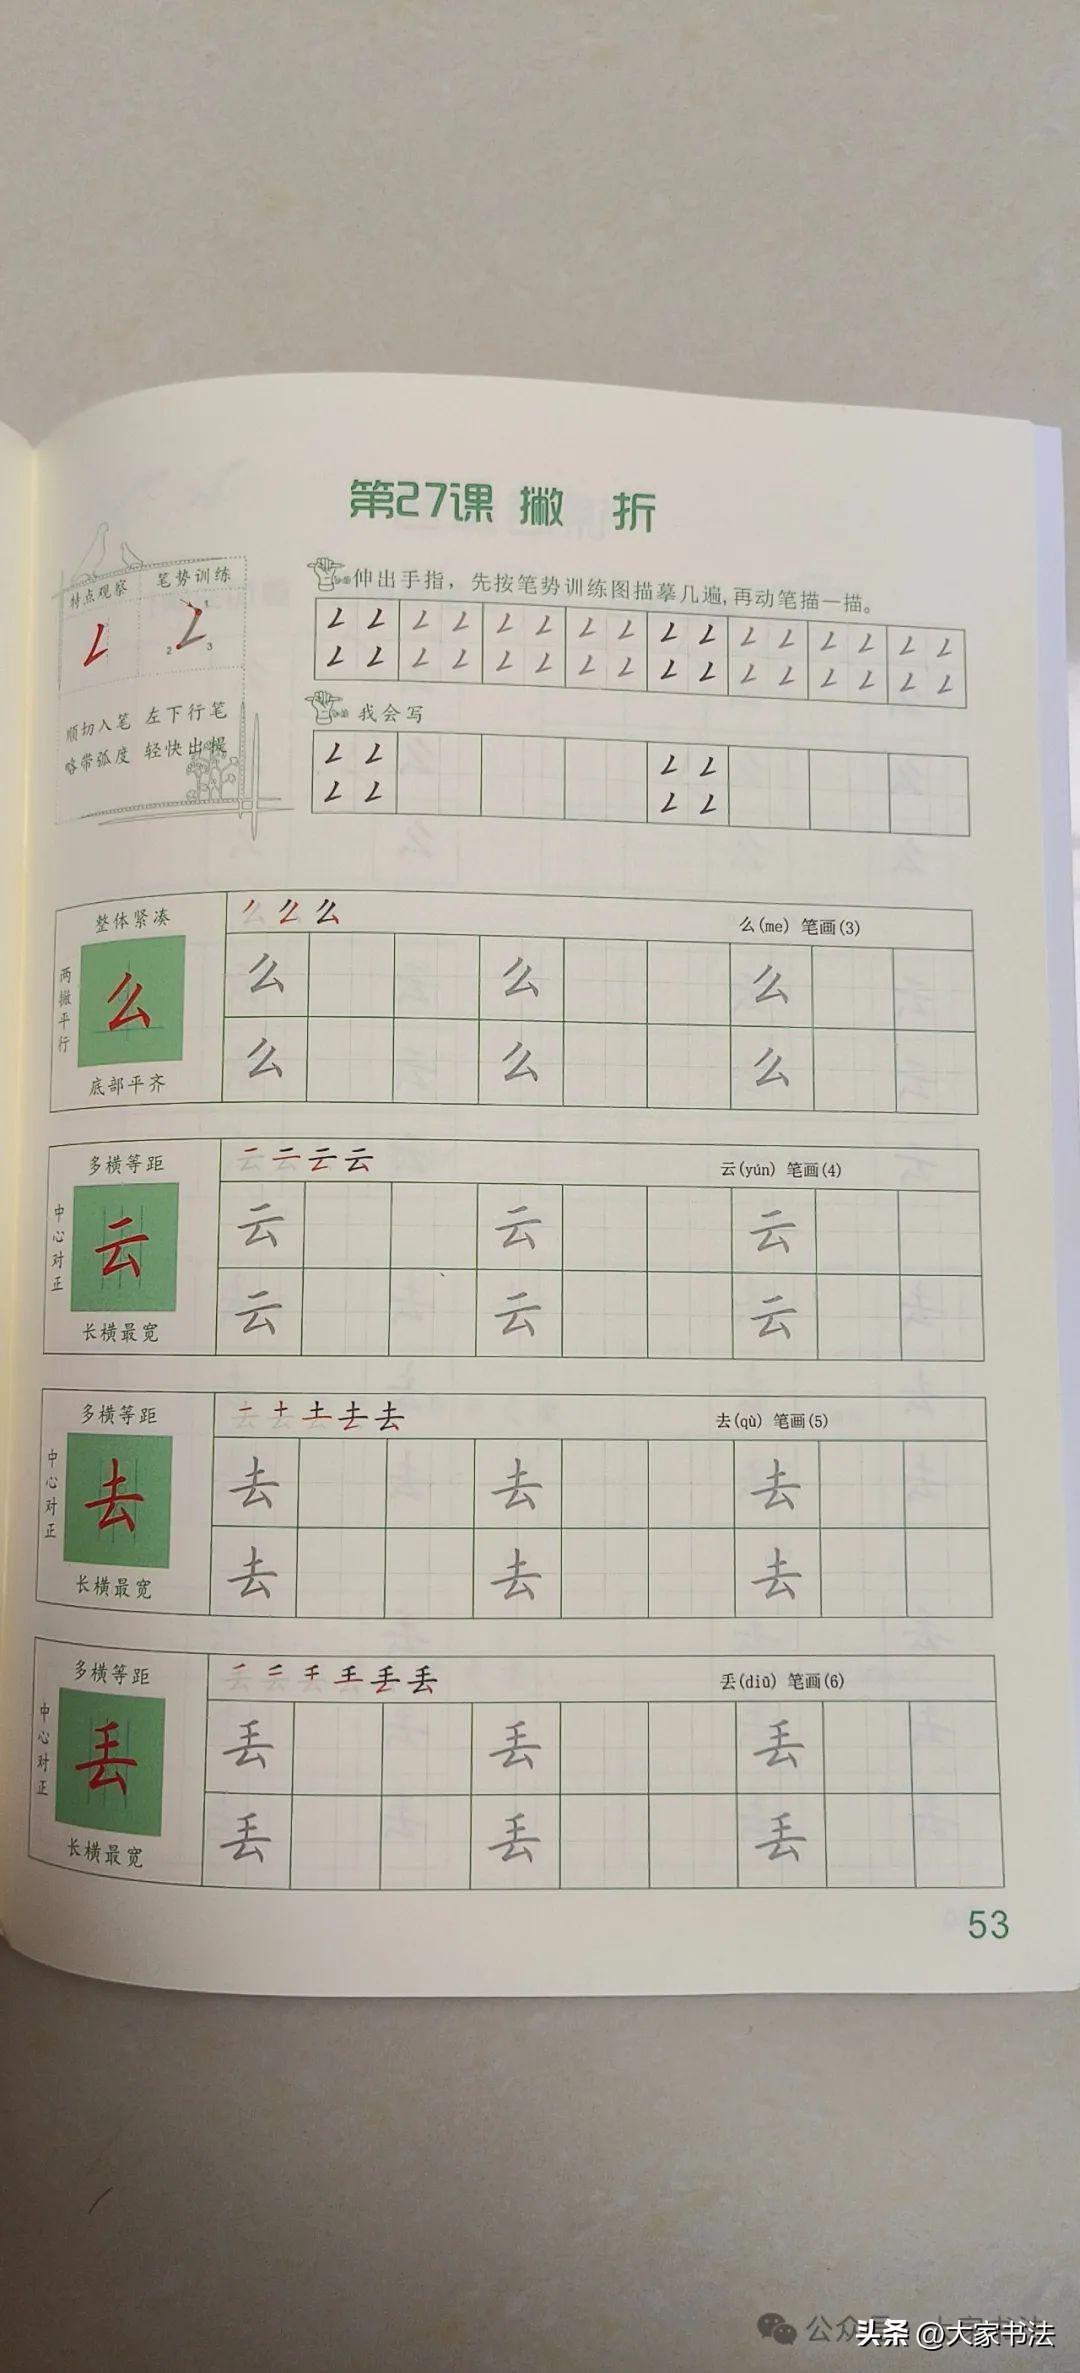 第27课 撇 折
特点观察 笔势训练
1
2 3
顺切入笔 左下行笔
略带弧度 轻快出提
伸出手指，先按笔势训练图描摹几遍,再动笔描一描。
我会写
整体紧凑
两撇平行
么
底部平齐
么
么(me) 笔画(3)
么 么 么
么 么 么
多横等距
中心对正
云
长横最宽
云
云(yún) 笔画(4)
云 云 云
云 云 云
多横等距
中心对正
去
长横最宽
去
去(qù) 笔画(5)
去 去 去
去 去 去
多横等距
中心对正
丢
长横最宽
丢
丢(diū) 笔画(6)
丢 丢 丢
丢 丢 丢
53
公众号
头条 @大家书法